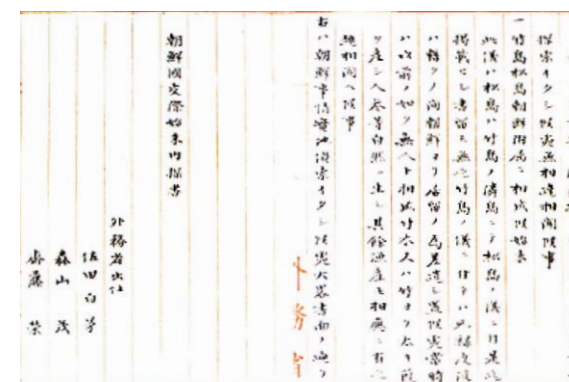 探索イタシ候処無相違相聞候事
一竹島松島朝鮮附属ニ相成候始末
此儀ハ松島ハ竹島ノ隣島ニテ松島ノ儀ニ付是迄
掲載セシ書留モ無之竹島ノ儀ニ付テハ元禄度後
ハ暫クノ間朝鮮ヨリ居留ノ為差遣シ置候処當時
ハ以前ノ如ク無人ト相成竹木又ハ竹ヨリ太キ葭
ヲ産シ人参等自然ニ生シ其餘漁産モ相應ニ有之
趣相聞ヘ候事
右ハ朝鮮事情實地偵索イタシ候処大畧書面ノ通リ
外務省
朝鮮國交際始末内探書
外務省出仕
佐田白茅
森山茂
斎藤榮